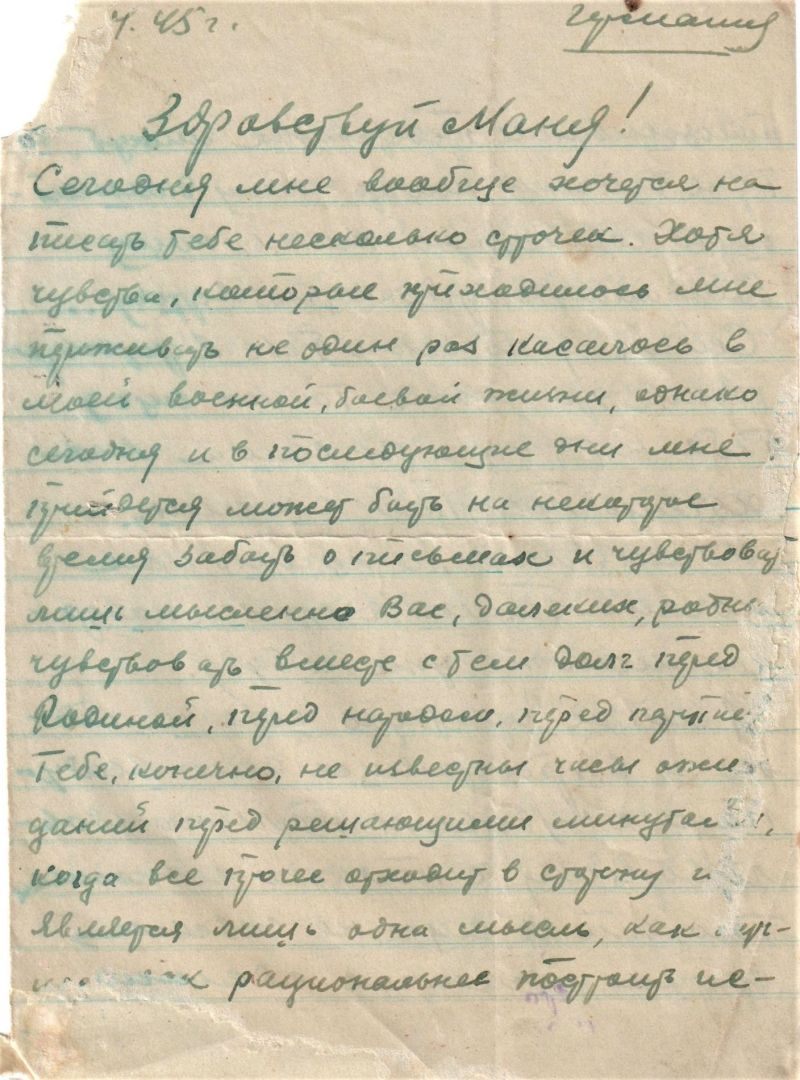 4. 45 г. Германия
Здравствуй Маня!
Сегодня мне вообще хочется на
писать тебе несколько строчек. Хотя
чувства, которые приходилось мне
переживать не один раз касалось в
моей военной, боевой жизни, однако
сегодня и в последующие дни мне
прийдется может быть на некоторое
время забыть о письмах и чувствовать
лишь мысленно Вас, далеких, родны
чувствовать вместе с тем долг перед
Родиной, перед народом, перед партие
Тебе, конечно, не известны часы ожи
даний перед решающими минутами,
когда все прочее отходит в сторону и
является лишь одна мысль, как
рациональнее построить